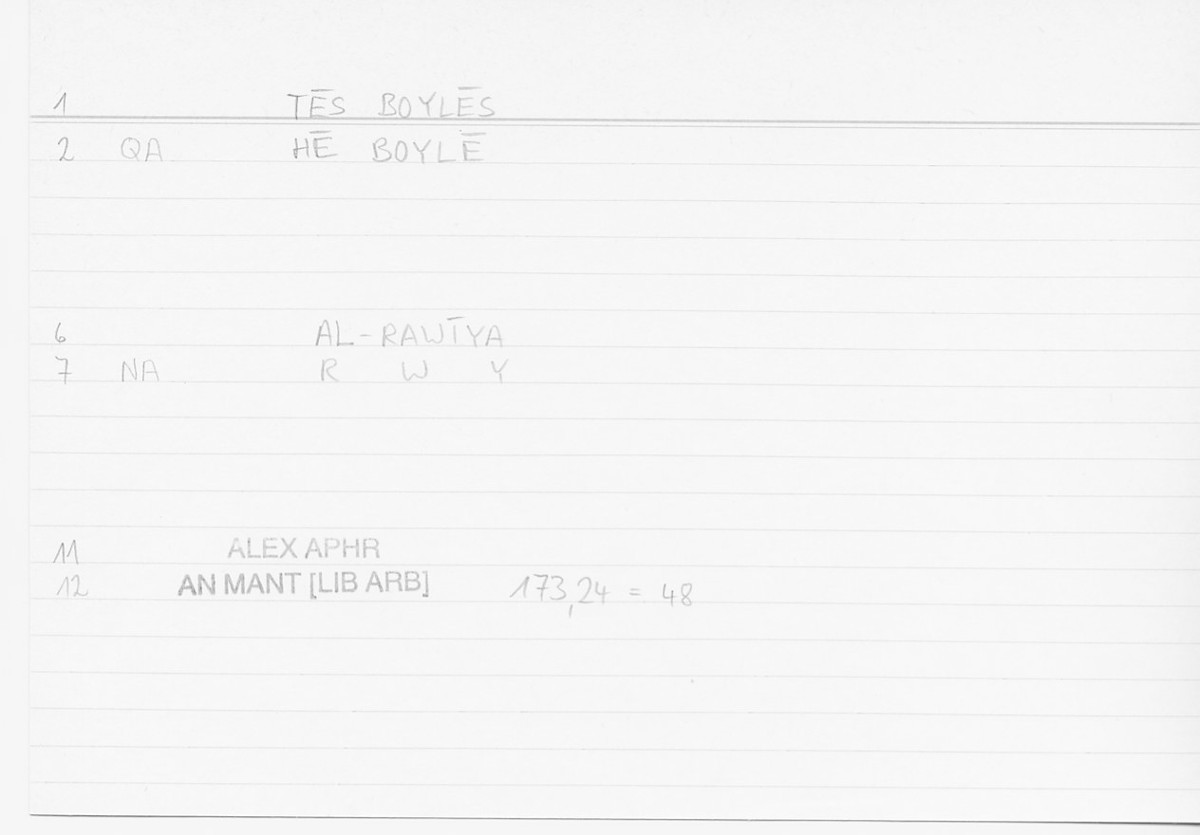 1 TĒS BOYLĒS
2 QA HĒ BOYLĒ
6 AL-RAWĪYA
7 NA R W Y
11 ALEX APHR
12 AN MANT [LIB ARB] 173,24 = 48